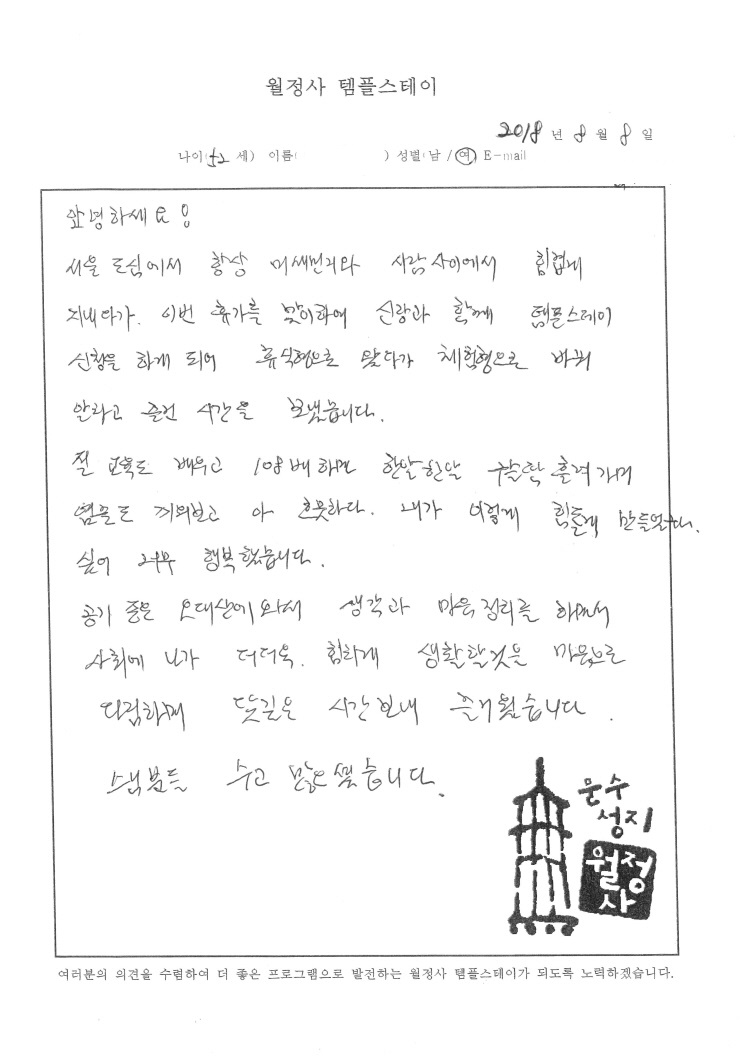 월정사 템플스테이
2018 년 8 월 8 일
나이( 52 세) 이름( ) 성별( 남 / 여 E-mail
안녕하세요!
서울 도심에서 항상 미세먼지와 사람 사이에서 힘겹게
지내다가. 이번 휴가를 맞이하여 신랑과 함께 템플스테이
신청을 하게 되어 휴식형으로 왔다가 체험형으로 바꿔
알차고 즐건 시간을 보냈습니다.
절 교육도 배우고 108배 하며 한알한알 구슬땀 흘려가며
염음도 끼워보고 아 흐뭇하다. 내가 이렇게 힘들게 만들었구나.
싶어 너무 행복했습니다.
공기 좋은 오대산에 와서 생각과 마음 정리를 하면서
사회에 나가 더더욱. 힘차게 생활할것을 마음으로
다짐하며 뜻깊은 시간 보내 즐거웠습니다.
스님분들 수고 많으셨습니다.
문수
성지
월정
사
여러분의 의견을 수렴하여 더 좋은 프로그램으로 발전하는 월정사 템플스테이가 되도록 노력하겠습니다.